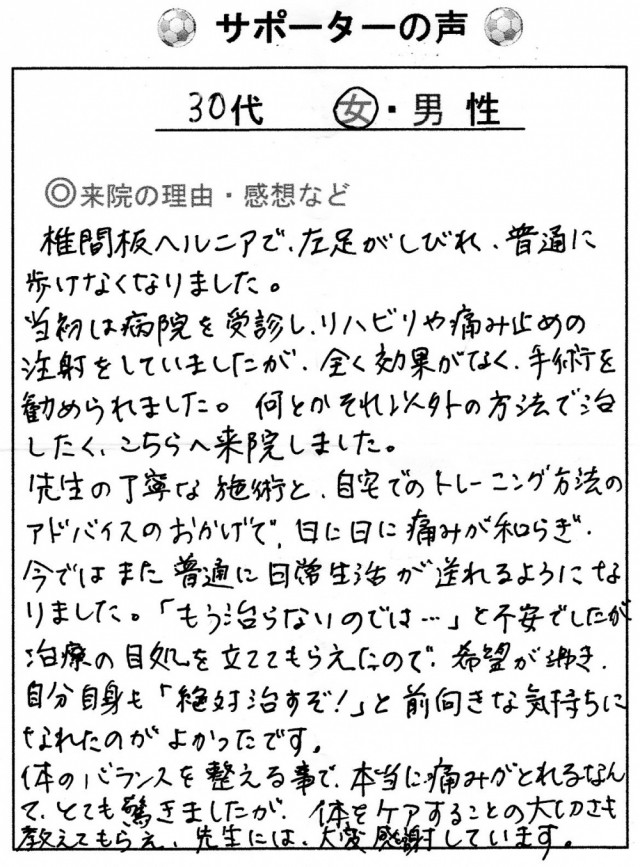 サポーターの声
30代 女・男 性
◎来院の理由・感想など
椎間板ヘルニアで、左足がしびれ、普通に
歩けなくなりました。
当初は病院を受診し、リハビリや痛み止めの
注射をしていましたが、全く効果がなく、手術を
勧められました。何とかそれ以外の方法で治
したく、こちらへ来院しました。
先生の丁寧な施術と、自宅でのトレーニング方法の
アドバイスのおかげで、日に日に痛みが和らぎ、
今ではまた普通に日常生活が送れるようにな
りました。「もう治らないのでは…」と不安でしたが
治療の目処を立ててもらえたので、希望が湧き、
自分自身も「絶対治すぞ!」と前向きな気持ちに
なれたのがよかったです。
体のバランスを整える事で、本当に痛みがとれるなん
て、とても驚きましたが、体をケアすることの大切さも
教えてもらえ、先生には、大変感謝しています。